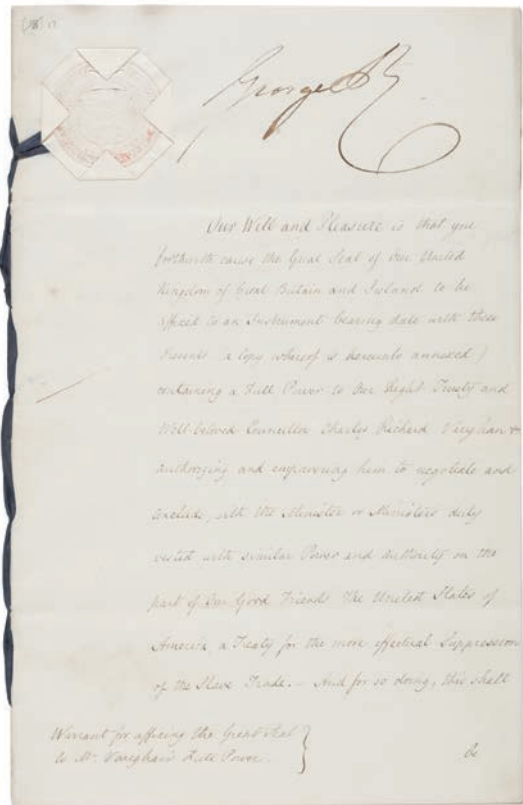 George R.
Our Will and Pleasure is that you
forthwith cause the Great Seal of Our United
Kingdom of Great Britain and Ireland to be
affixed to an Instrument bearing date with these
Presents (a Copy whereof is hereunto annexed)
containing a Full Power to Our Right Trusty and
Well-beloved Councillor Charles Richard Vaughan
authorizing and empowering him to negotiate and
conclude, with the Minister or Ministers duly
vested with similar Power and Authority on the
part of Our Good Friends The United States of
America, a Treaty for the more effectual Suppression
of the Slave Trade. – And for so doing, this shall
be
Warrant for affixing the Great Seal
to Mr. Vaughan's Full Power.